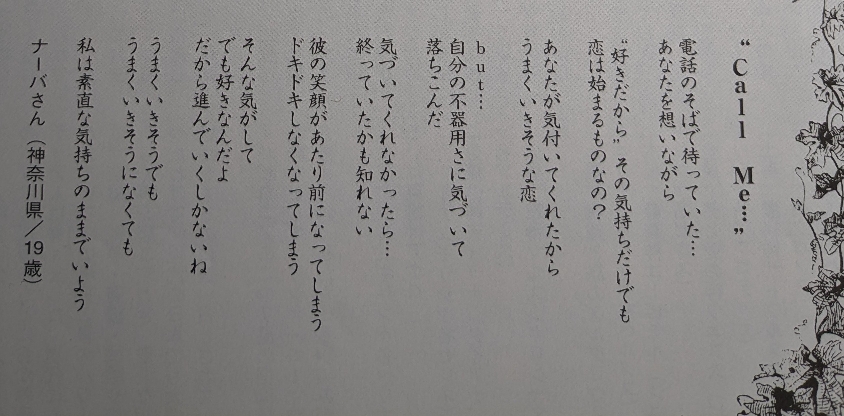 “Call Me…”
電話のそばで待っていた…
あなたを想いながら
“好きだから”その気持ちだけでも
恋は始まるものなの？
あなたが気付いてくれたから
うまくいきそうな恋
but…
自分の不器用さに気づいて
落ちこんだ
気づいてくれなかったら…
終っていたかも知れない
彼の笑顔があたり前になってしまう
ドキドキしなくなってしまう
そんな気がして
でも好きなんだよ
だから進んでいくしかないね
うまくいきそうでも
うまくいきそうになくても
私は素直な気持ちのままでいよう
ナーバさん（神奈川県／19歳）